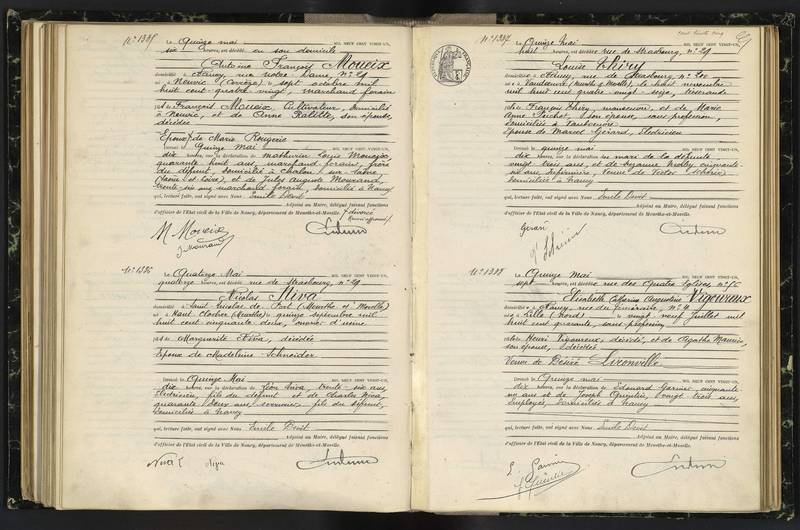 N° 1385
Le Quinze mai MIL NEUF CENT VINGT-UN,
six heures, est décédé en son domicile
Antoine François Moueix
domicilié à Nancy, rue Notre Dame, n° 29
né à Neuvic (Corrèze) le sept octobre mil
huit cent quatre vingt, marchand forain
fils de François Moueix, Cultivateur, domicilié
à Neuvic, et de Anne Ratelle, son épouse,
décédée
Epoux de Marie Rougerie
Dressé le Quinze Mai MIL NEUF CENT VINGT-UN,
dix heures, sur la déclaration de Mathurin Louis Moueix
quarante huit ans, marchand forain, frère
du défunt, domicilié à Chalon-sur-Saône
(Saône et Loire), et de Jules Auguste Mourand,
trente-six ans, marchand forain, domicilié à Nancy
qui, lecture faite, ont signé avec Nous Emile Devit
Adjoint au Maire, délégué faisant fonctions
d'officier de l'Etat civil de la Ville de Nancy, département de Meurthe-et-Moselle.
divorcé
M. Moueix
J. Mourand
N° 1386
Le Quatorze Mai MIL NEUF CENT VINGT-UN,
quatorze heures, est décédé rue de Strasbourg, n° 29
Nicolas Niva
domicilié à Saint Nicolas de Port (Meurthe et Moselle)
né à Haut Clocher (Meurthe) quinze septembre mil
huit cent cinquante deux, ouvrier d'usine
fils de Marguerite Niva, décédée
Epoux de Madeleine Schneider
Dressé le Quinze Mai MIL NEUF CENT VINGT-UN,
dix heures, sur la déclaration de Léon Niva, trente six ans,
électricien, fils du défunt et de Charles Niva,
quarante deux ans, fils du défunt,
domiciliés à Nancy
qui, lecture faite, ont signé avec Nous Emile Devit
Adjoint au Maire, délégué faisant fonctions
d'officier de l'Etat civil de la Ville de Nancy, département de Meurthe-et-Moselle.
N° 1387
Le Quinze Mai MIL NEUF CENT VINGT-UN,
huit heures, est décédée rue de Strasbourg, n° 29
Louise Thiry
domiciliée à Nancy, rue de Strasbourg, n° 200
née à Vandoeuvre (Meurthe et Moselle), le huit novembre
mil huit cent quatre vingt seize, tisserande
fille de François Thiry, manoeuvre, et de Marie
Anne Pechot, son épouse, sans profession,
domiciliés à Vandoeuvre
Epouse de Marcel Gérard, électricien
Dressé le quinze mai MIL NEUF CENT VINGT-UN,
dix heures, sur la déclaration du mari de la défunte
vingt trois ans, et de Suzanne cinquante
six ans, infirmière, Veuve de Victor
domiciliés à Nancy
qui, lecture faite, ont signé avec Nous Emile Devit
Adjoint au Maire, délégué faisant fonctions
d'officier de l'Etat civil de la Ville de Nancy, département de Meurthe-et-Moselle.
Gérard
N° 1388
Le Quinze Mai MIL NEUF CENT VINGT-UN,
sept heures, est décédée rue des Quatre Eglises, n° 56
Elisabeth Catherine Augustine Vigoureux
domiciliée à Nancy, rue du n° 4
née à Lille (Nord) le vingt neuf Juillet mil
huit cent quarante, sans profession
fille de Henri Vigoureux, décédé, et de Agathe Maurice,
son épouse, décédée
Veuve de Désiré Lironville
Dressé le Quinze mai MIL NEUF CENT VINGT-UN,
dix heures, sur la déclaration de Edouard Garnier, cinquante
un ans et de Joseph Quintin, vingt trois ans,
employés, domiciliés à Nancy
qui, lecture faite, ont signé avec Nous Emile Devit
Adjoint au Maire, délégué faisant fonctions
d'officier de l'Etat civil de la Ville de Nancy, département de Meurthe-et-Moselle.
E. Garnier
J. Quintin